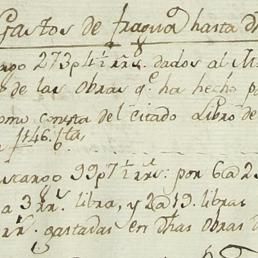 Gastos de fragua hasta d
273 p 4½ rr.s dados al M
de las Obras q.e ha hecho p
como consta del citado Libro de
f 146. b.ta
cargo 99 p 7½ rr.s por 6 a 2
a 3 rr.s libra, y 2 a 19. libras
rr.s gastadas en dhas Obras d